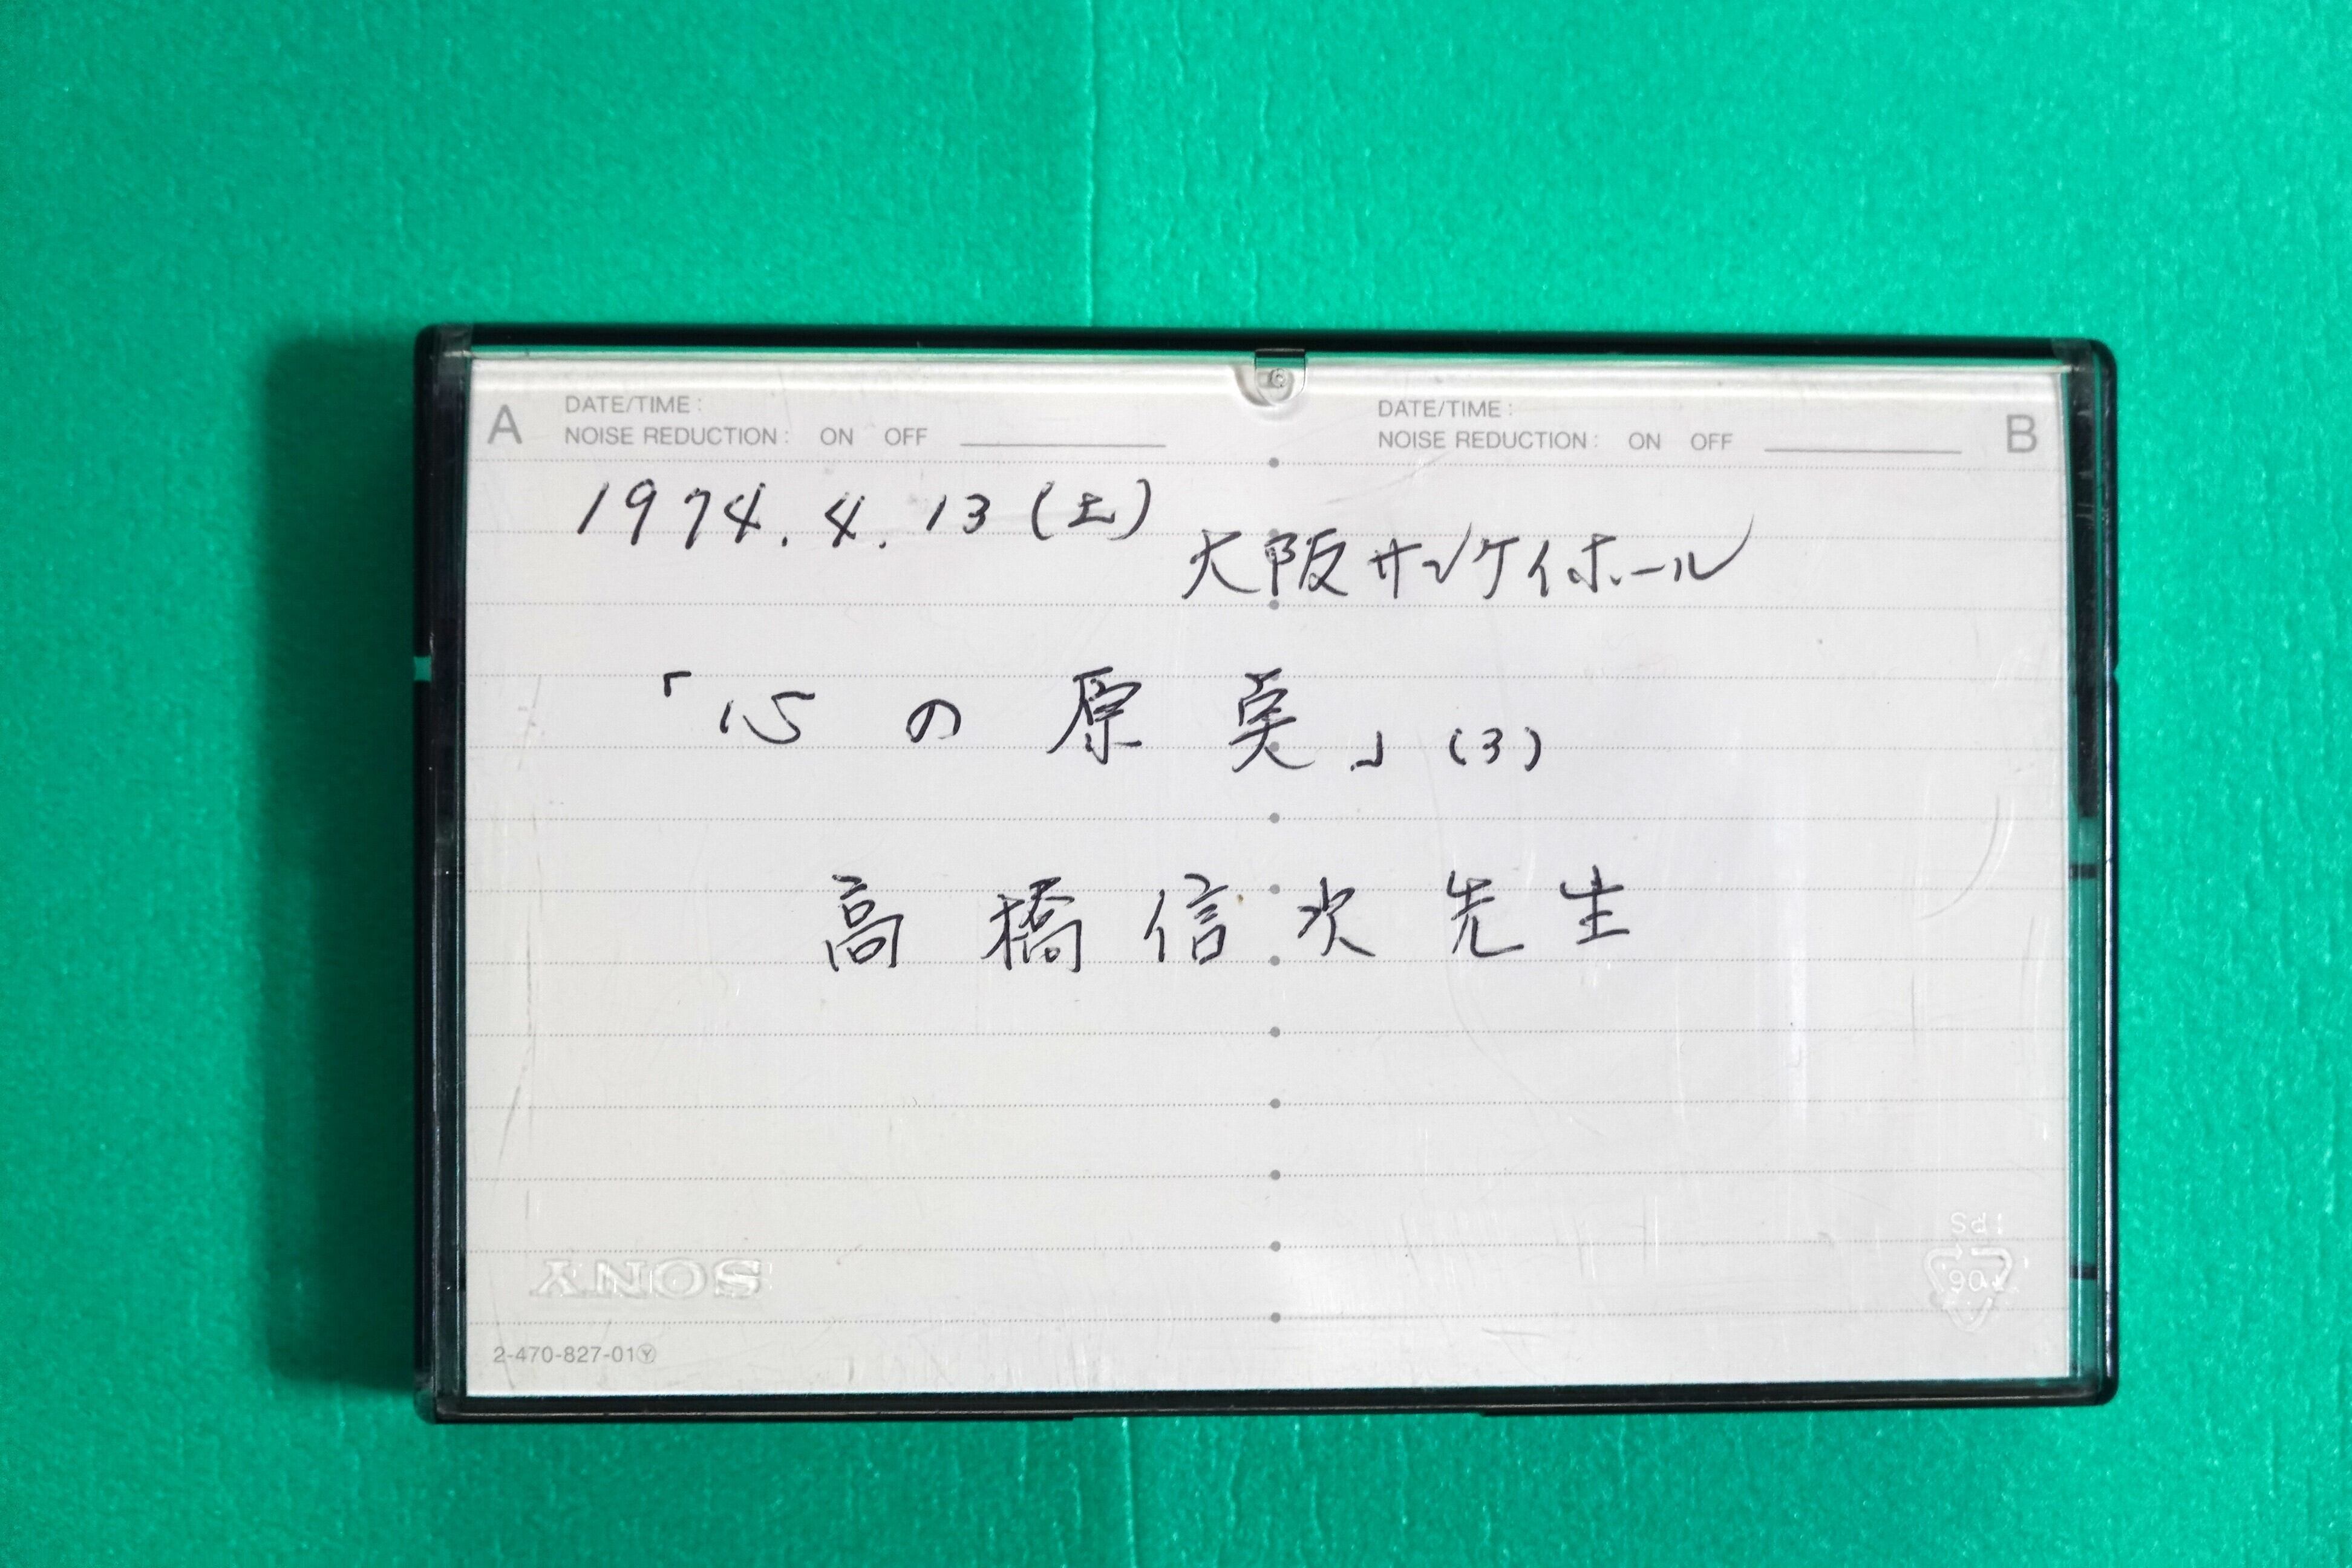 A DATE/TIME : DATE/TIME : B
NOISE REDUCTION : ON OFF NOISE REDUCTION : ON OFF
1974.4.13(土)
大阪サンケイホール
「心の原点」(3)
高橋信次先生
SONY
PS
06
2-470-827-01Ⓨ